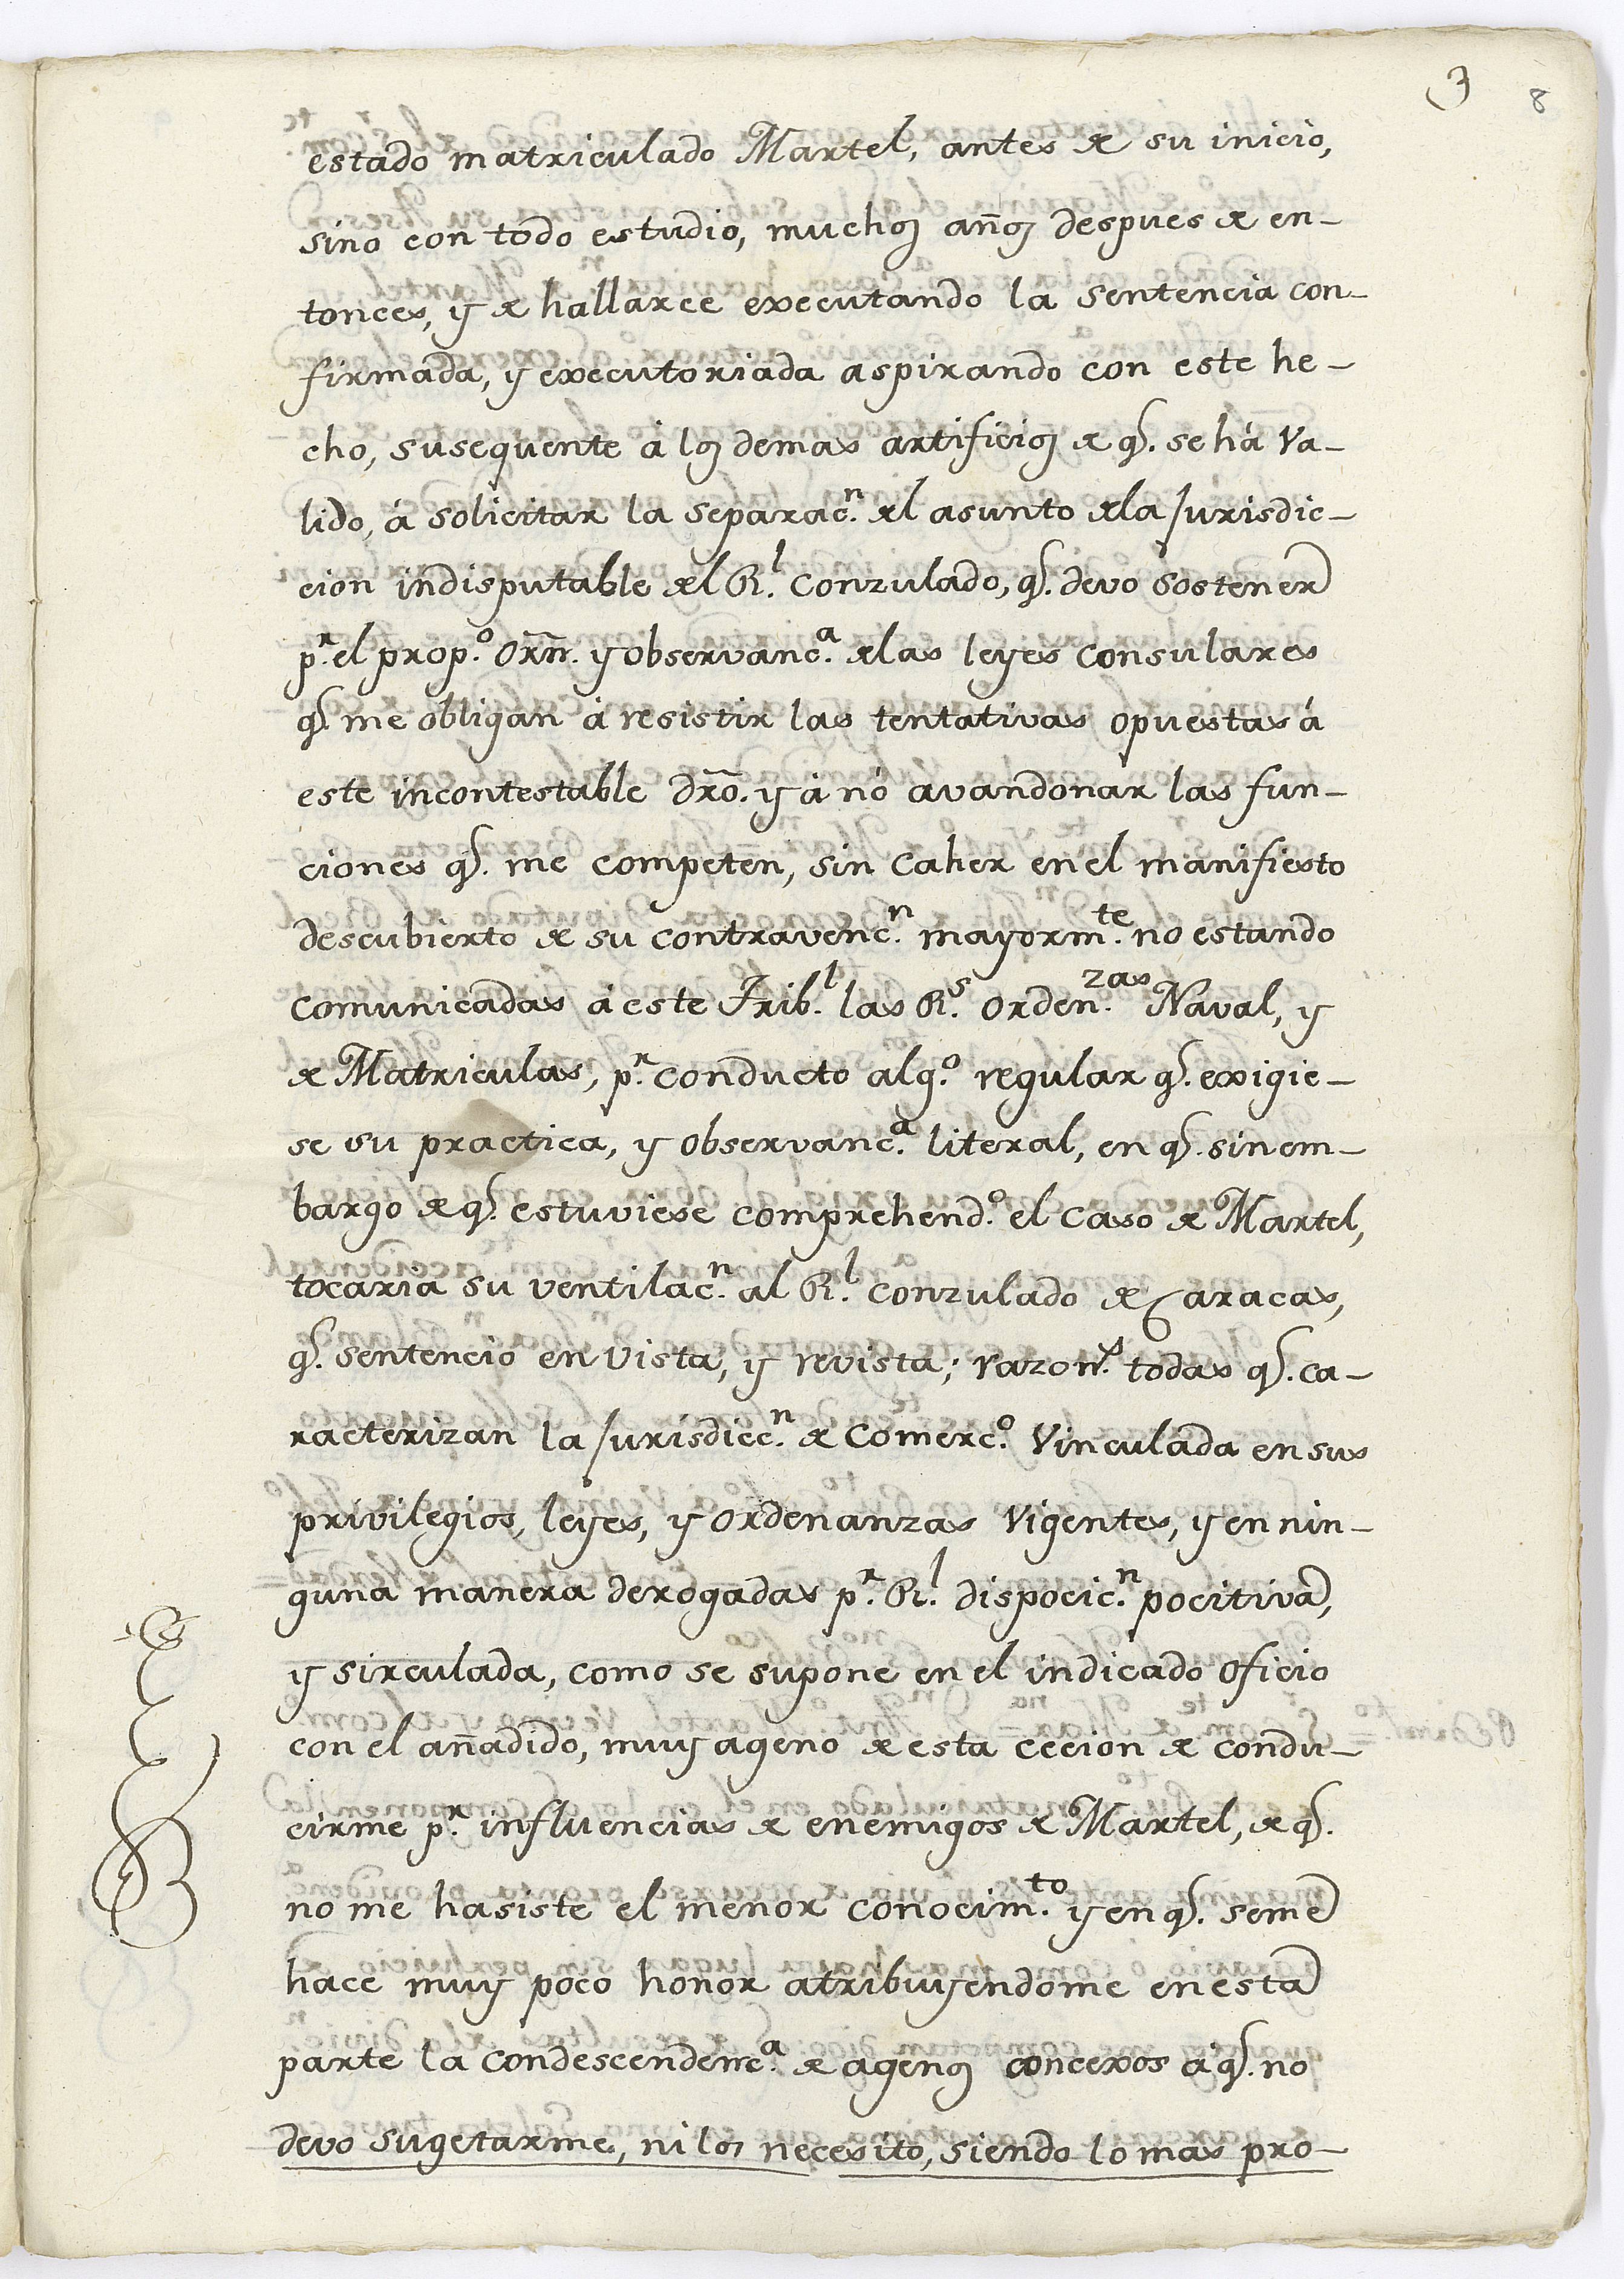 3 8
estado matriculado Martel, antes de su inicio,
sino con todo estudio, muchos años despues de en-
tonces, y de hallarce executando la sentencia con-
firmada, y executoriada aspirando con este he-
cho, susequente á los demas artificios de q.e se há va-
lido, á solicitar la separac.n del asunto dela Jurisdic-
cion indisputable del R.l Conzulado, q.e devo sostener
p.r el prop.o orñ. y observanc.a delas leyes consulares
q.e me obligan á resistir las tentativas opuestas á
este incontestable dr̃o. y á nó avandonar las fun-
ciones q.e me competen, sin caher en el manifiesto
descubierto de su contravenc.n mayorm.te no estando
comunicadas á este Trib.l las R.s orden.zas Naval, y
de Matriculas, p.r conducto alg.o regular q.e exigie-
se su practica, y observanc.a literal, en q.e sin em-
bargo de q.e estuviese comprehend.o el caso de Martel,
tocaria su ventilac.n al R.l Conzulado de Caracas,
q.e sentencio en vista, y revista; razon.s todas q.e ca-
racterizan la Jurisdicc.n de Comerc.o vinculada en sus
privilegios, leyes, y ordenanzas vigentes, y en nin-
guna manera derogadas p.r R.l dispocic.n pocitiva,
y sirculada, como se supone en el indicado oficio
con el añadido, muy ageno de esta cecion de condu-
cirme p.r influencias de enemigos de Martel, de q.e
no me hasiste el menor conocim.to y en q.e se me
hace muy poco honor atribuyendome en esta
parte la condescendenc.a de agenos concexos á q.e no
devo sugetarme, ni los necesito, siendo lo mas pro-